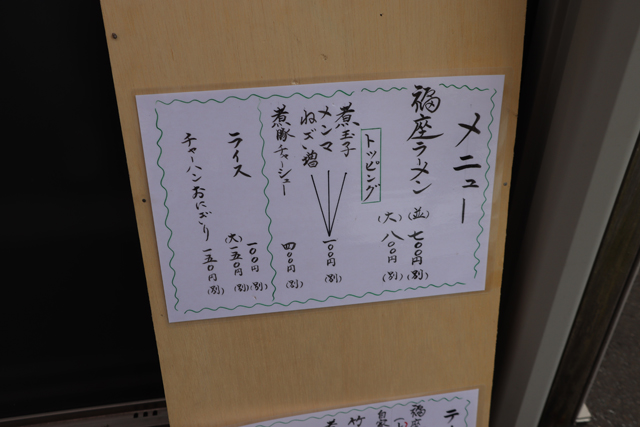 メニュー
福座ラーメン (並) 七〇〇円(別)
(大) 八〇〇円(別)
トッピング
煮玉子
メンマ 一〇〇円(別)
ねぎ増
煮豚チャーシュー 四〇〇円(別)
ライス 一〇〇円(別)
(大)一五〇円(別)
チャーハンおにぎり 一五〇円(別)
テ
福座
竹